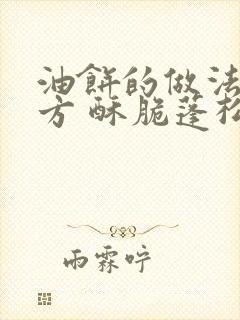 油餅的做法
方 酥脆蓬松
雨霖咛